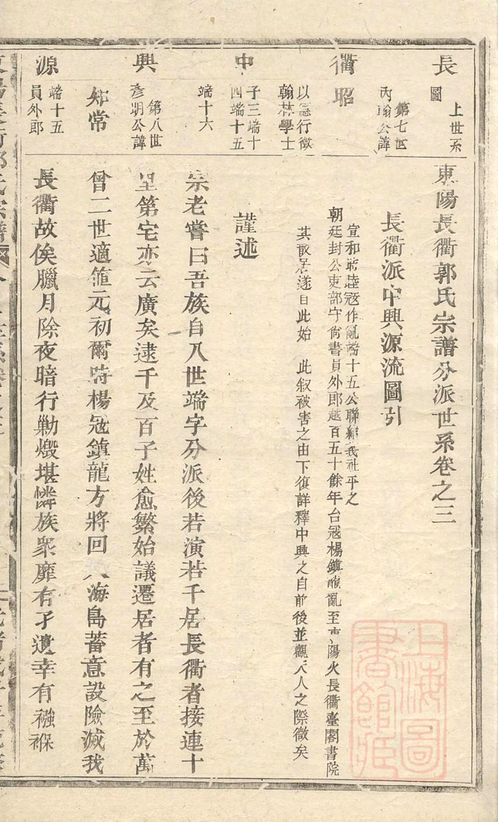 東陽長衢郭氏宗譜分派世系卷之三
長衢派中興源流圖引
長
圖
上世系
第七世
丙翰公諱
衢
昭
以德行徵
翰林學士
中
子三端十
四端十五
端十六
興
第八世
彥明公諱
知常
源
端十五
員外郎
宣和
寇作亂端十五公聯
社平之
朝廷封公吏部守尚書員外郎越百五十餘年台寇楊鎮
亂至東陽火長衢臺閣書院
其
居遂自此始
此叙被害之由下復詳釋中興之自前後並觀天人之際微矣
謹述
宗老嘗曰吾族自八世端字分派後若演若千居長衢者接連十
里第宅亦云廣矣逮千及百子姓愈繁始議遷居者有之至於萬
曾二世適
元初爾時楊寇鎮龍方將回
海島蓄意設險滅我
長衢故俟臘月除夜暗行勦燬堪憐族衆靡有孑遺幸有襁褓
上海圖
書館